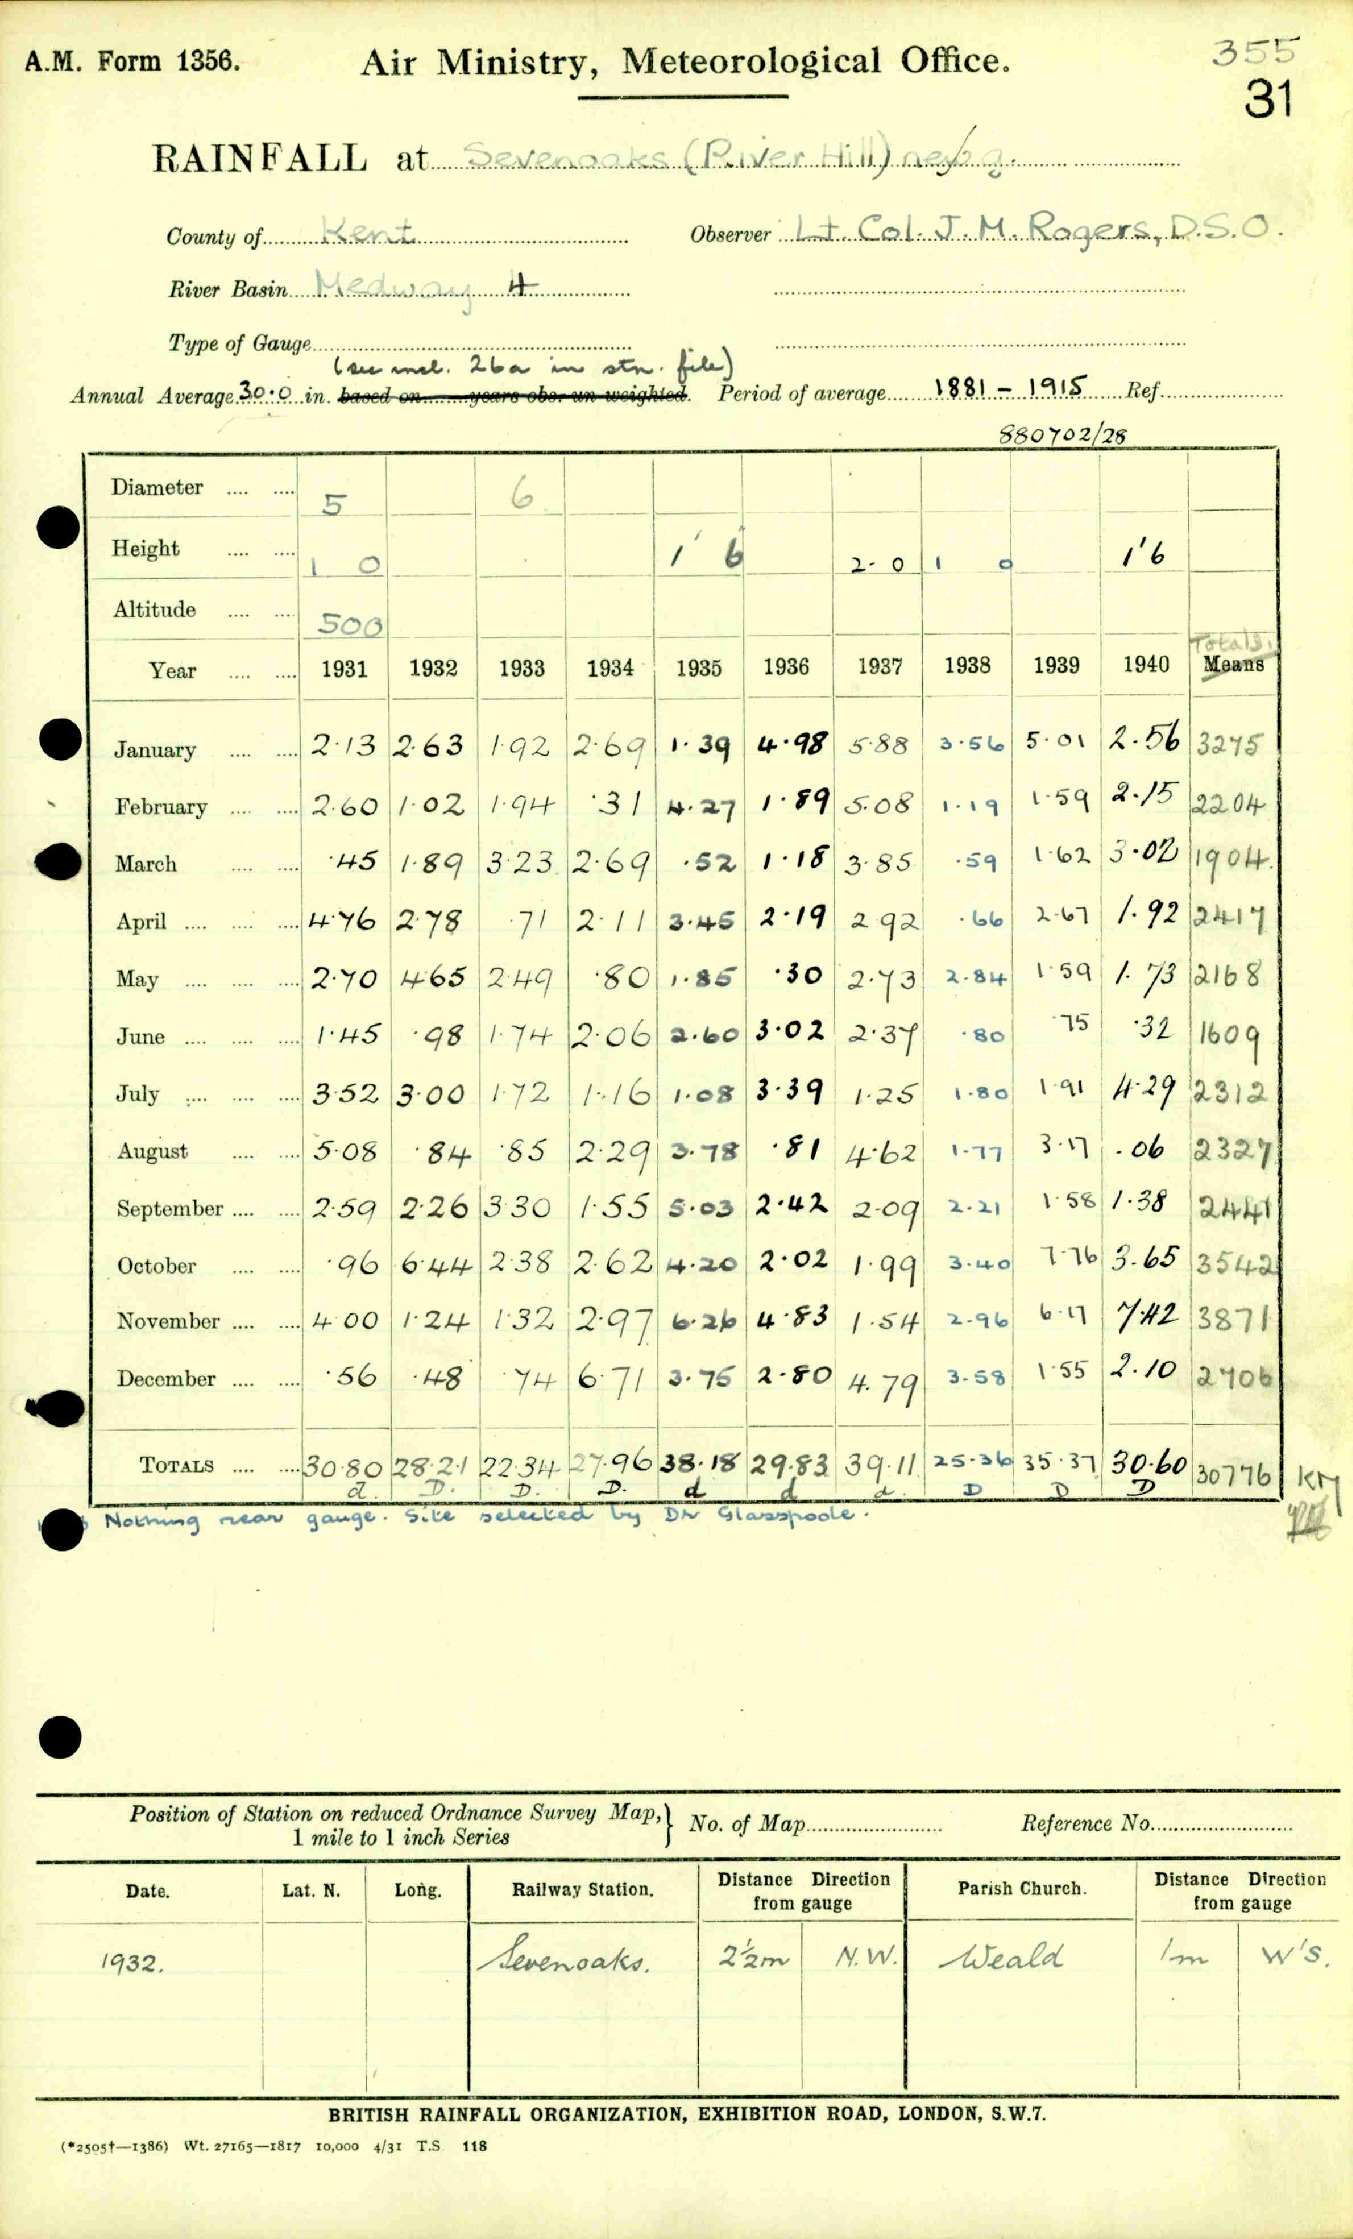 A.M. Form 1356.
Air Ministry, Meteorological Office.
355
31
RAINFALL at Sevenoaks (River Hill)
County of Kent Observer Lt. Col. J. M. Rogers, D.S.O.
River Basin Medway 4
Type of Gauge
(see incl. 26a in stn. file)
Annual Average 30.0 in. based on years obs. un weighted. Period of average 1881 - 1915 Ref.
880702/28
Diameter 5 6
Height 1 0 1' 6 2 - 0 1 0 1'6
Altitude 500
Totals.
Year 1931 1932 1933 1934 1935 1936 1937 1938 1939 1940 Means
January 2.13 2.63 1.92 2.69 1.39 4.98 5.88 3.56 5.01 2.56 3275
February 2.60 1.02 1.94 .31 4.27 1.89 5.08 1.19 1.59 2.15 2204
March .45 1.89 3.23 2.69 .52 1.18 3.85 .59 1.62 3.02 1904
April 4.76 2.78 .71 2.11 3.45 2.19 2.92 .66 2.67 1.92 2417
May 2.70 4.65 2.49 .80 1.85 .30 2.73 2.84 1.59 1.73 2168
June 1.45 .98 1.74 2.06 2.60 3.02 2.37 .80 .75 .32 1609
July 3.52 3.00 1.72 1.16 1.08 3.39 1.25 1.80 1.91 4.29 2312
August 5.08 .84 .85 2.29 3.78 .81 4.62 1.77 3.17 .06 2327
September 2.59 2.26 3.30 1.55 5.03 2.42 2.09 2.21 1.58 1.38 2441
October .96 6.44 2.38 2.62 4.20 2.02 1.99 3.40 7.76 3.65 3542
November 4.00 1.24 1.32 2.97 6.26 4.83 1.54 2.96 6.17 7.42 3871
December .56 .48 .74 6.71 3.75 2.80 4.79 3.58 1.55 2.10 2706
TOTALS 30.80 28.21 22.34 27.96 38.18 29.83 39.11 25.36 35.37 30.60 30776
d. D. D. D. d d d. D D D
Nothing near gauge. Site selected by Dr Glasspoole.
Position of Station on reduced Ordnance Survey Map, No. of Map Reference No.
1 mile to 1 inch Series
Date. Lat. N. Long. Railway Station. Distance Direction from gauge Parish Church. Distance Direction from gauge
1932. Sevenoaks. 2½m N.W. Weald 1m W'S.
BRITISH RAINFALL ORGANIZATION, EXHIBITION ROAD, LONDON, S.W.7.
(*2505†—1386) Wt. 27165—1817 10,000 4/31 T.S. 118